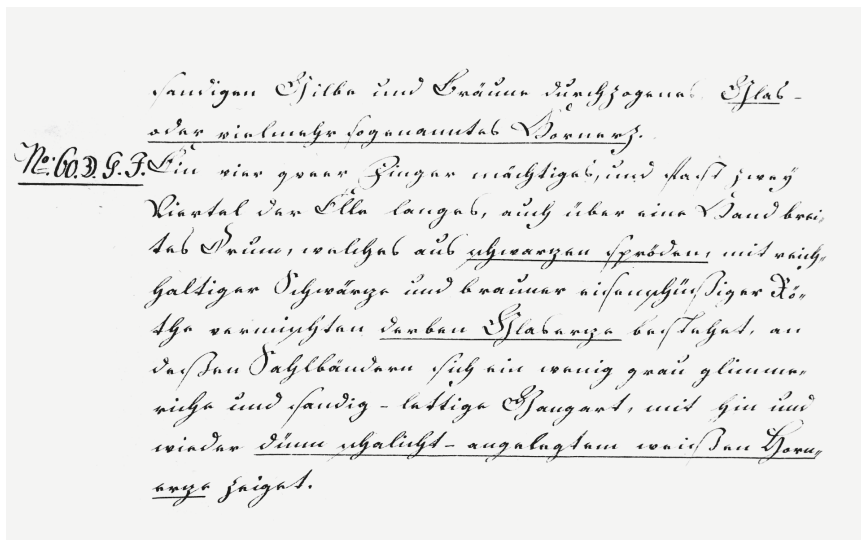 sandigen Gilbe und Bräune durchzogenes Glas-
oder vielmehr sogenanntes Hornerz.
No: 60. D. G. J. Ein vier queer Finger mächtiges, und fast zwey
Viertel der Elle langes, auch über eine Hand brei„
tes Trum, welches aus schwarzen spröden, mit reich„
haltiger Schwärze und brauner eisenschüßiger Rö„
the vermischten derben Glaserze bestehet, an
deßen Sahlbändern sich ein wenig grau glimme„
riche und sandig-lettige Gangart, mit hin und
wieder dünn schalicht-angelegtem weißen Horn„
erze zeiget.